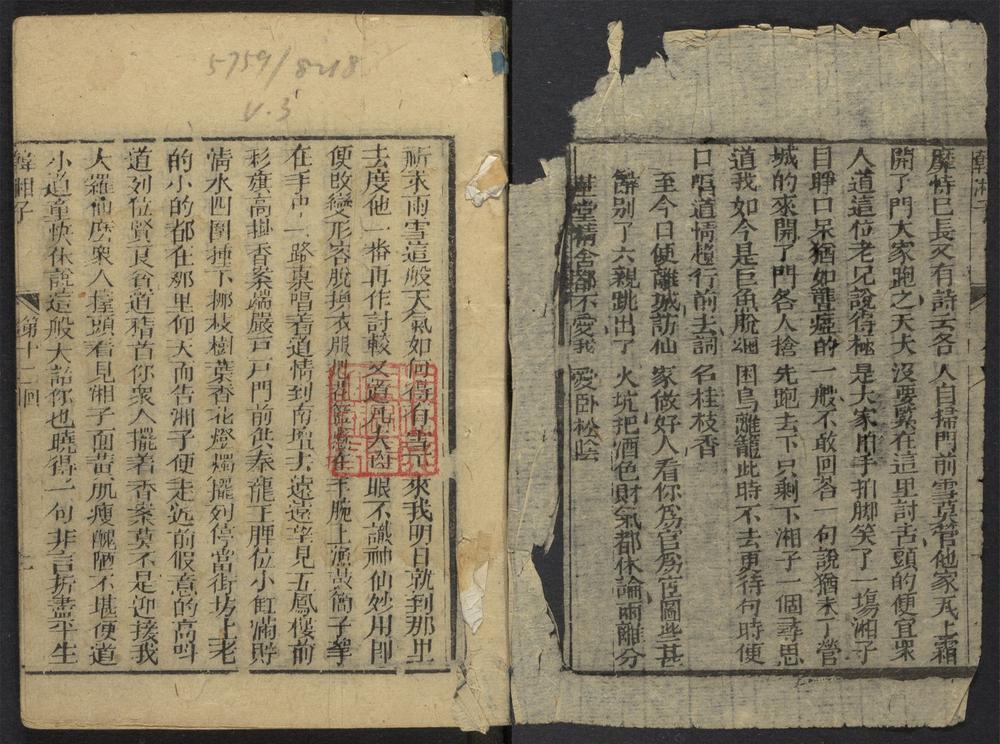 韓湘子
歷時已長又有詩云各人自掃門前雪莫管他家瓦上霜
開了門大家跑之夭夭沒要緊在這里討舌頭的便宜衆
人道這位老兄說得極是大家拍手拍脚笑了一塲湘子
目睜口呆猶如聾瘂的一般不敢回答一句說猶未了營
城的來開了門各人搶先跑去下只剩下湘子一個尋思
道我如今是巨魚脫網困鳥離籠此時不去更待何時便
口唱道情趲行前去詞名桂枝香
至今日便離城訪仙家做好人看你為官為宦圖些甚
辭别了六親跳出了火坑把酒色財氣都休論兩離分
華堂精舍都不愛我愛卧松陰
5759/8218
V.3
祈求雨雪這般天氣如何得有雪下來我明日就到那里
去度他一番再作討較又道凡夫肉眼不識神仙妙用即
便改變形容脫換衣服把花籃懸在手腕上漁鼓簡子拏
在手中一路裏唱着道情到南壇去遠遠望見五鳳樓前
彩旗高掛香案端嚴戸戸門前供奉龍王牌位小缸滿貯
情水四圍揷下挪枝樹葉香花燈燭擺列停當街坊上老
的小的都在那里仰天而告湘子便走近前假意的高叫
道列位賢良貧道稽首你衆人擺着香案莫不是迎接我
大羅仙麽衆人擡頭看見湘子面黃肌瘦醜陋不堪便道
小道童快休說這般大話你也曉得一句非言折盡平生
韓湘子
第十二回